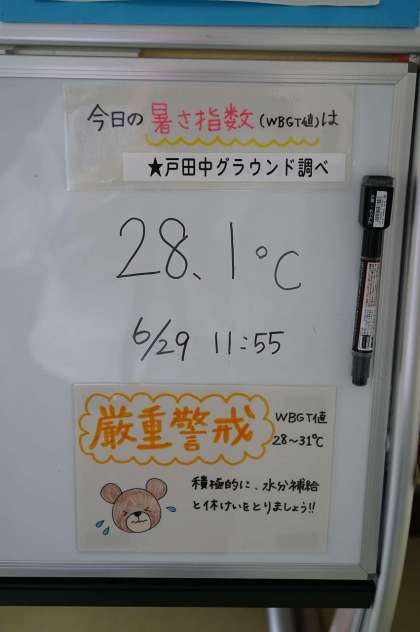 今日の暑さ指数(WBGT値)は
★戸田中グラウンド調べ
28.1℃
6/29 11:55
厳重警戒
WBGT値
28〜31℃
積極的に、水分補給
と休けいをとりましょう!!